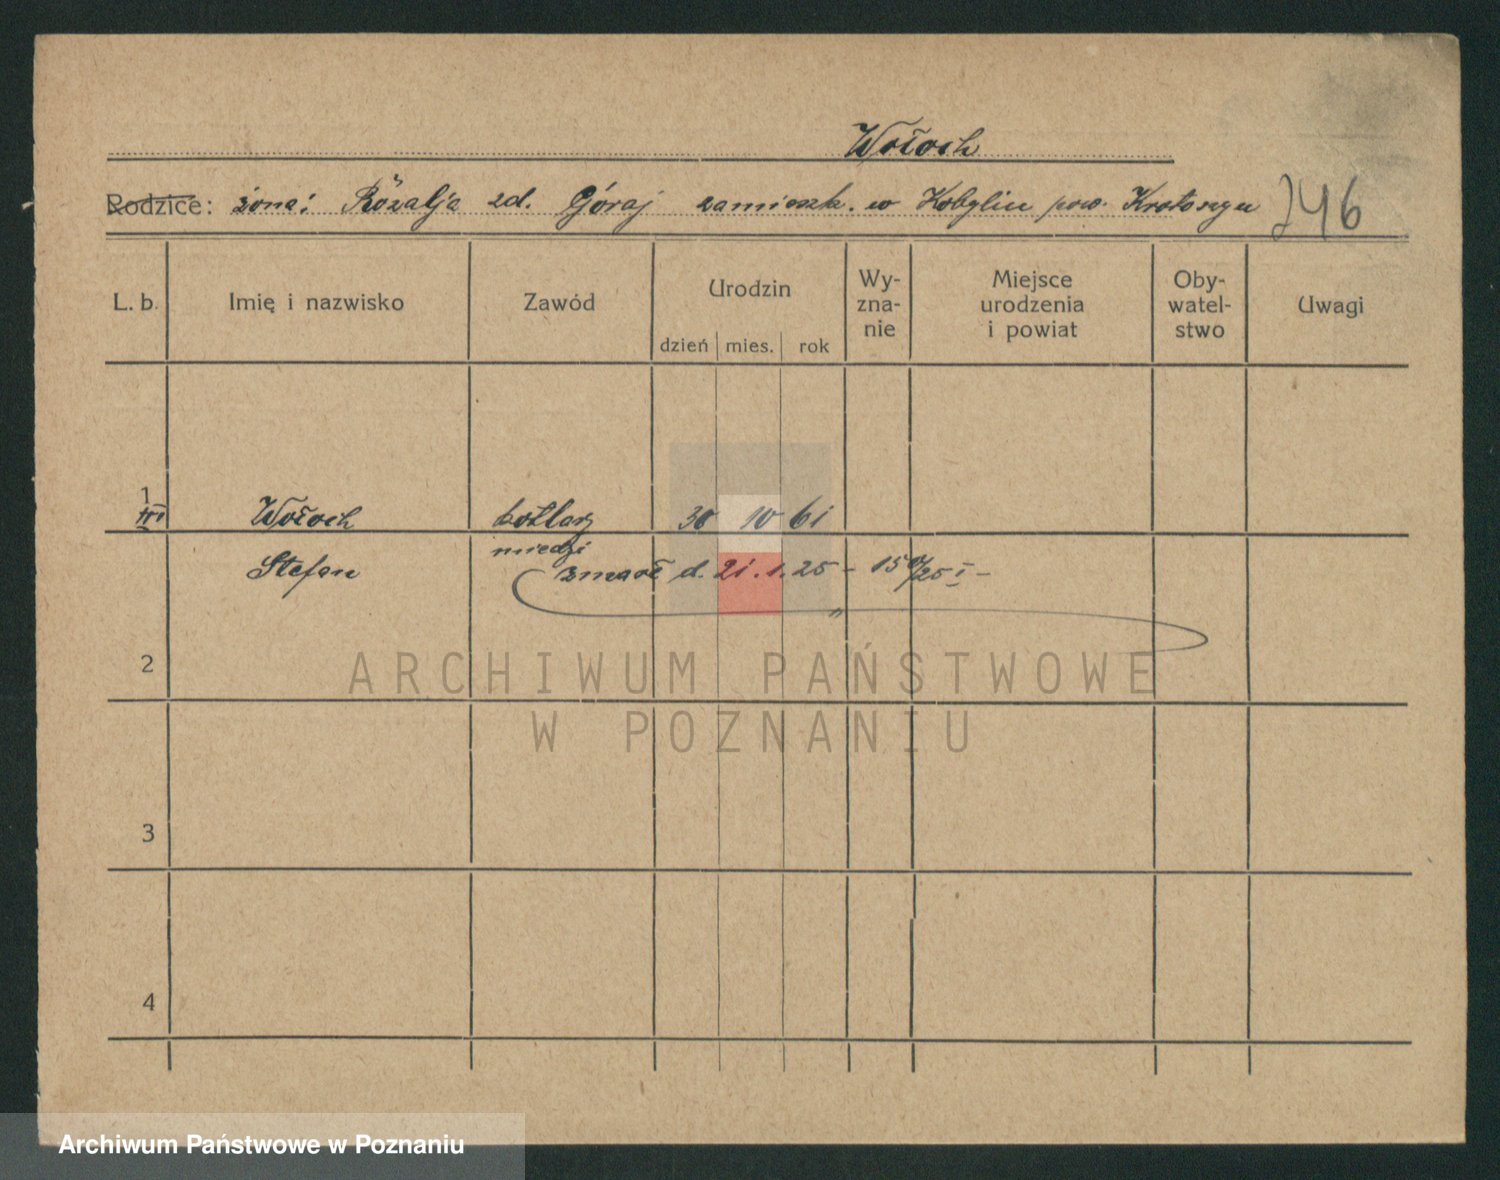 Wołoch
Rodzice: żona: Rózalja zd. Góraj zamieszk. w Kobylin pow. Krotoszyn 246
L. b. Imię i nazwisko Zawód Urodzin Wy-
zna-
nie Miejsce
urodzenia
i powiat Oby-
watel-
stwo Uwagi
dzień mies. rok
1
Wołoch kotlarz 30 10 61
miedzi
Stefan zmarł d. 21.1.25 -
2
ARCHIWUM PAŃSTWOWE
W POZNANIU
3
4
Archiwum Państwowe w Poznaniu